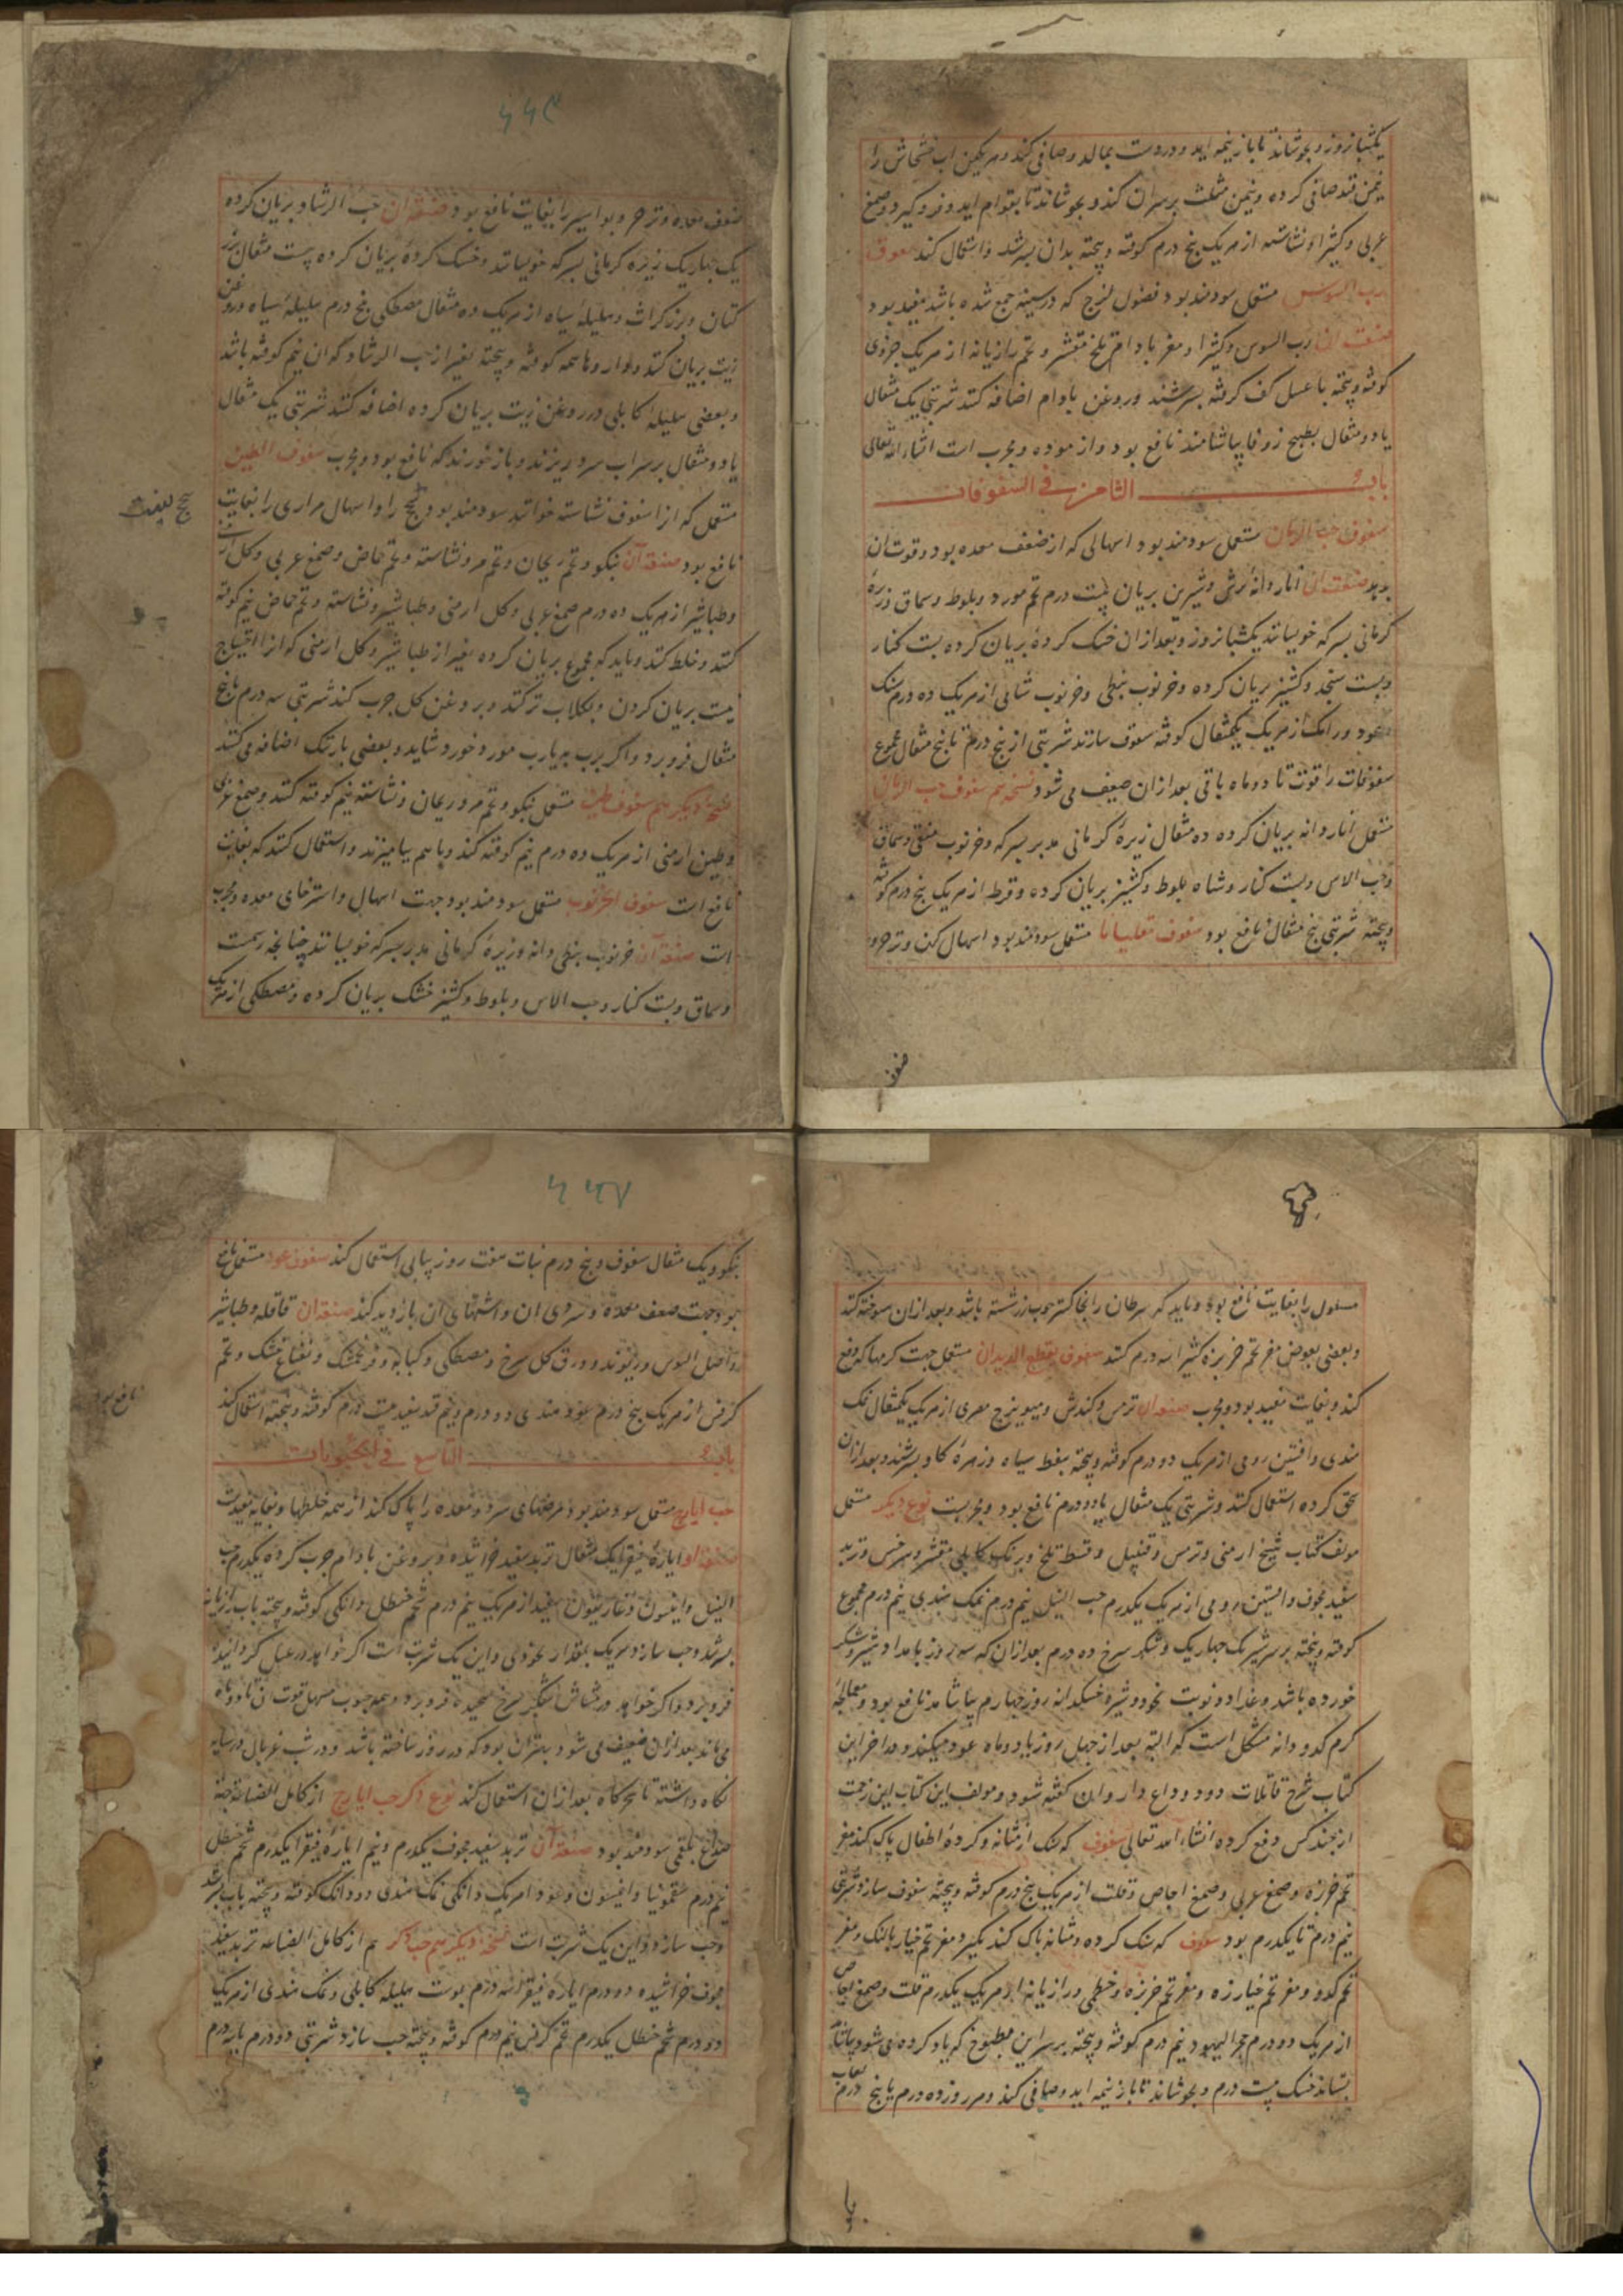 یکشبانروز و بجوشاند تا باز نیمه آید و دردست بمالد و صافی کند و هر یکمن آب خشخاش را
نیمن قند صافی کرده و نیمن مثلث بر سر آن کند و بجوشاند تا بقوام آید و فرو گیرد و صمغ
عربی و کثیرا و نشاسته از هر یک پنج درم کوفته و پخته بدان بسرشد و استعمال کند لعوق
رب السوس مستعمل سودمند بود فضول لزج که در سینه جمع شده باشد مفید بود
صنعت آن رب السوس و کثیرا و مغز بادام تلخ مقشر و تخم رازیانه از هر یک جزوی
کوفته و پخته با عسل کف کرفته بسرشند و روغن بادام اضافه کنند شربتی یک مثقال
یا دو مثقال بطبیخ زوفا بیاشامند نافع بود و ازموده و مجرب است انشاء الله تعالی
باب الثامن فی السفوفات
سفوف حب الرمان مستعمل سودمند بود اسهالی که از ضعف معده بود و قوت آن
بدهد صنعت آن انار دانه ترش و شیرین بریان بیست درم تخم مورد و بلوط و سماق و زیره
کرمانی بسرکه خوسیانند یکشبانروز و بعد از ان خشک کرده بریان کرده بست کنار
و بست سنجد و کشنیز بریان کرده و خرنوب نبطی و خرنوب شامی از هر یک ده درم سک
و عود و رامک از هر یک یکمثقال کوفته سفوف سازند شربتی از پنج درم تا پنج مثقال مجموع
سفوفات را قوت تا دو ماه باقی بعد از ان ضعیف می شود نسخه هم سفوف حب الرمان
مستعمل انار دانه بریان کرده ده مثقال زیره کرمانی مدبر بسرکه و خرنوب منقی و سماق
و حب الاس و بست کنار و شاه بلوط و کشنیز بریان کرده و قرط از هر یک پنج درم کوفته
و پخته شربتی پنج مثقال نافع بود سفوف مقلیاثا مستعمل سودمند بود اسهال کهن و زحیر و
ضعف
۶۶۹
ضعف معده و زحیر و بواسیر را بغایت نافع بود صنعه آن حب الرشاد بریان کرده
یک چهاریک زیره کرمانی بسرکه خوسیانند و خشک کرده بریان کرده بیست مثقال بزر
کتان و بزر کراث و هلیله سیاه از هر یک ده مثقال مصطکی پنج درم هلیله سیاه در روغن
زیت بریان کند و ادویها همه کوفته و پخته بغیر از حب الرشاد که ان نیم کوفته باشد
و بعضی هلیله کابلی در روغن زیت بریان کرده اضافه کنند شربتی یک مثقال
یا دو مثقال بر سر آب سرد ریزند و باز خورند که نافع بود و مجرب سفوف الطین
مستعمل که انرا سفوف نشاسته خوانند سودمند بود سحج را و اسهال مراری را بغایت
نافع بود صنعه آن بنکو و تخم ریحان و تخم مرو نشاسته و تخم حماض و صمغ عربی و کل ارمنی
و طباشیر از هر یک ده درم صمغ عربی و کل ارمنی و طباشیر و نشاسته و تخم حماض نیم کوفته
کنند و خلط کنند و باید که مجموع بریان کرده بغیر از طباشیر و کل ارمنی که انرا احتیاج
نیست بریان کردن و بکلاب تر کنند و بروغن کل چرب کند شربتی سه درم تا پنج
مثقال فرو برد و اکر برب به یا رب مورد خورد شاید و بعضی بارتنک اضافه می کنند
نسخه دیگر هم سفوف طین مستعمل بنکو و تخم مرو و ریحان و نشاسته نیم کوفته کنند و صمغ عربی
و طین ارمنی از هر یک ده درم نیم کوفته کند و با هم بیامیزند و استعمال کنند که بغایت
نافع است سفوف الخرنوب مستعمل سودمند بود جهت اسهال و استرخای معده و مجرب
است صنعه آن خرنوب نبطی و انه و زیره کرمانی مدبر بسرکه خوسیانند چنانچه رسمست
و سماق و بست کنار و حب الاس و بلوط و کشنیز خشک بریان کرده و مصطکی از هر یک
مسلول را بغایت نافع بود و باید که سرطان را بخاکستر چوب رز شسته باشد و بعد از ان سوخته کنند
و بعضی بعوض مغز تخم خربزه کثیرا سه درم کنند سفوف یقطع الدیدان مستعمل جهت کرمها که دفع
کند و بغایت مفید بود و مجرب صنعه آن ترمس و کندش و میویزج مصری از هر یک یکمثقال نمک
هندی و افسنتین رومی از هر یک دو درم کوفته و پخته بنفط سیاه و زهره کاو بسرشند و بعد از ان
سحق کرده استعمال کنند و شربتی یک مثقال یا دو درم نافع بود و مجربست نوع دیگر مستعمل
مولف کتاب شیخ ارمنی و ترمس و قنبیل و قسط تلخ و برنک کابلی مقشر و سرخس و تربد
سفید مجوف و افسنتین رومی از هر یک یکدرم حب النیل نیم درم نمک هندی نیم درم مجموع
کوفته و پخته بر سر شیر یک چهاریک و شکر سرخ ده درم بعد از ان که سه روز بامداد شیر و شکر
خورده باشد و غذا دو نوبت نخود و شیر و خسکدانه روز چهارم بیاشامد نافع بود و معالجه
کرم کدو دانه مشکل است که البته بعد از چهل روز یا دو ماه عود میکند و در اخر این
کتاب شرح قاتلات دود و داع دار وان کفته شود و مولف این کتاب این زحمت
از چند کس دفع کرده انشاء الله تعالی سفوف که سنک از مثانه و کرده اطفال پاک کند مغز
تخم خربزه و صمغ عربی و صمغ اجاص و قلت از هر یک پنج درم کوفته و پخته سفوف سازد شربتی
نیم درم تا یکدرم بود سفوف که سنک کرده و مثانه پاک کند بکیرد مغز تخم خیار بالنک و مغز
تخم کدو و مغز تخم خیارزه و مغز تخم خربزه و خطمی و رازیانه از هر یک یکدرم قلت و صمغ اجاص
از هر یک دو درم حجر الیهود نیم درم کوفته و پخته بر سر این مطبوخ که یاد کرده می شود بیاشامد
بستاند خسک بیست درم و بجوشاند تا باز نیمه آید و صافی کند و هر روز ده درم با پنج درم
۶۶۷
بنکو و یک مثقال سفوف و پنج درم نبات هفت روز پیاپی استعمال کند سفوف عود مستعمل نافع
بود جهت ضعف معده و سردی ان و اشتهای ان باز دید کند صنعه آن قاقله و طباشیر
و اصل السوس و ریوند و ورق کل سرخ و مصطکی و کبابه و فرنجمشک و نعناع خشک و تخم
کرفس از هر یک پنج درم عود هندی دو درم و نیم قند سفید بیست درم کوفته و پخته استعمال کند
باب التاسع فی الحبوبات
حب ایارج مستعمل سودمند بود مرضهای سرد و معده را پاک کند از همه خلطها و بغایه مفیدست
صنعه او ایاره فیقرا یک مثقال تربد سفید خراشیده و بروغن بادام چرب کرده یکدرم حب
النیل و انیسون و غاریقون سفید از هر یک نیم درم شحم حنظل دانکی کوفته و پخته باب رازیانه
بسرشد و حب سازد هر یک بمقدار نخودی و این یک شربت است اکر خواهد در عسل کرداند
فرو برد و اکر خواهد در شاش بشکر سرخ پیچیده فرو برد و همه حبوب مسهل قوت ان تا دو ماه
می ماند بعد از ان ضعیف می شود بهتر ان بود که در روز ساخته باشد و در شب غربال در سایه
نکاه داشته تا سحرکاه بعد از ان استعمال کند نوع دکر حب ایارج از کامل الصناعه جهة
صداع بلغمی سودمند بود صنعه آن تربد سفید مجوف یکدرم و نیم ایاره فیقرا یکدرم شحم حنظل
نیم درم سقمونیا و انیسون و عود از هر یک دانکی نمک هندی دو دانک کوفته و پخته باب بسرشد
و حب سازد و این یک شربت است نسخه دیکر هم حب ذکر هم از کامل الصناعه تربد سفید
مجوف خراشیده دو درم ایاره فیقرا سه درم پوست هلیله کابلی و نمک هندی از هر یک
دو درم شحم حنظل یکدرم تخم کرفس نیم درم کوفته و پخته حب سازد شربتی دو درم یا سه درم